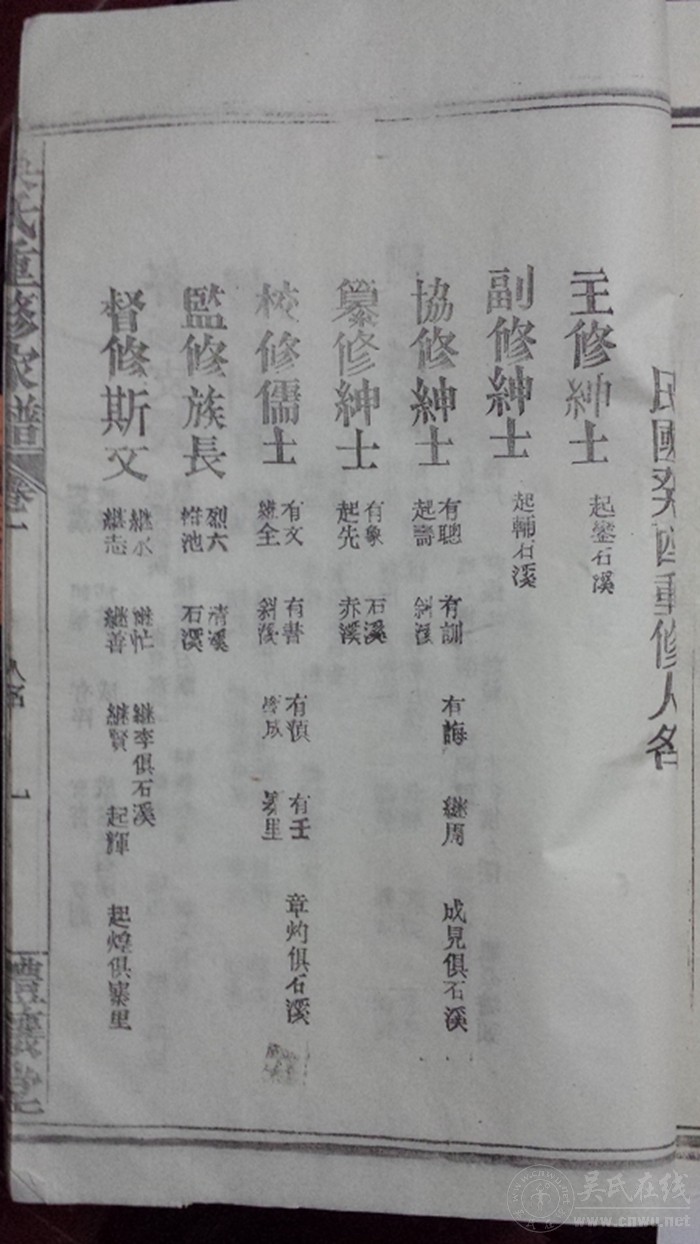 民國癸酉重修人名
主修紳士 起鑾石溪
副修紳士 起輔石溪
協修紳士 有聰 有訓 有誨 継周 成見俱石溪
起壽 斜溪
纂修紳士 有象 石溪
起先 赤溪
校修儒士 有文 有書 有滇 有壬 章灼俱石溪
継全 斜溪 寨里
監修族長 烈六 清溪
池 石溪
督修斯文 継永 継忙 継李俱石溪
継志 継善 継賢 起輝 起煌俱寨里
吳氏重修家譜 卷一 人名 一 禮讓堂
吴氏在线
www.cnwu.net